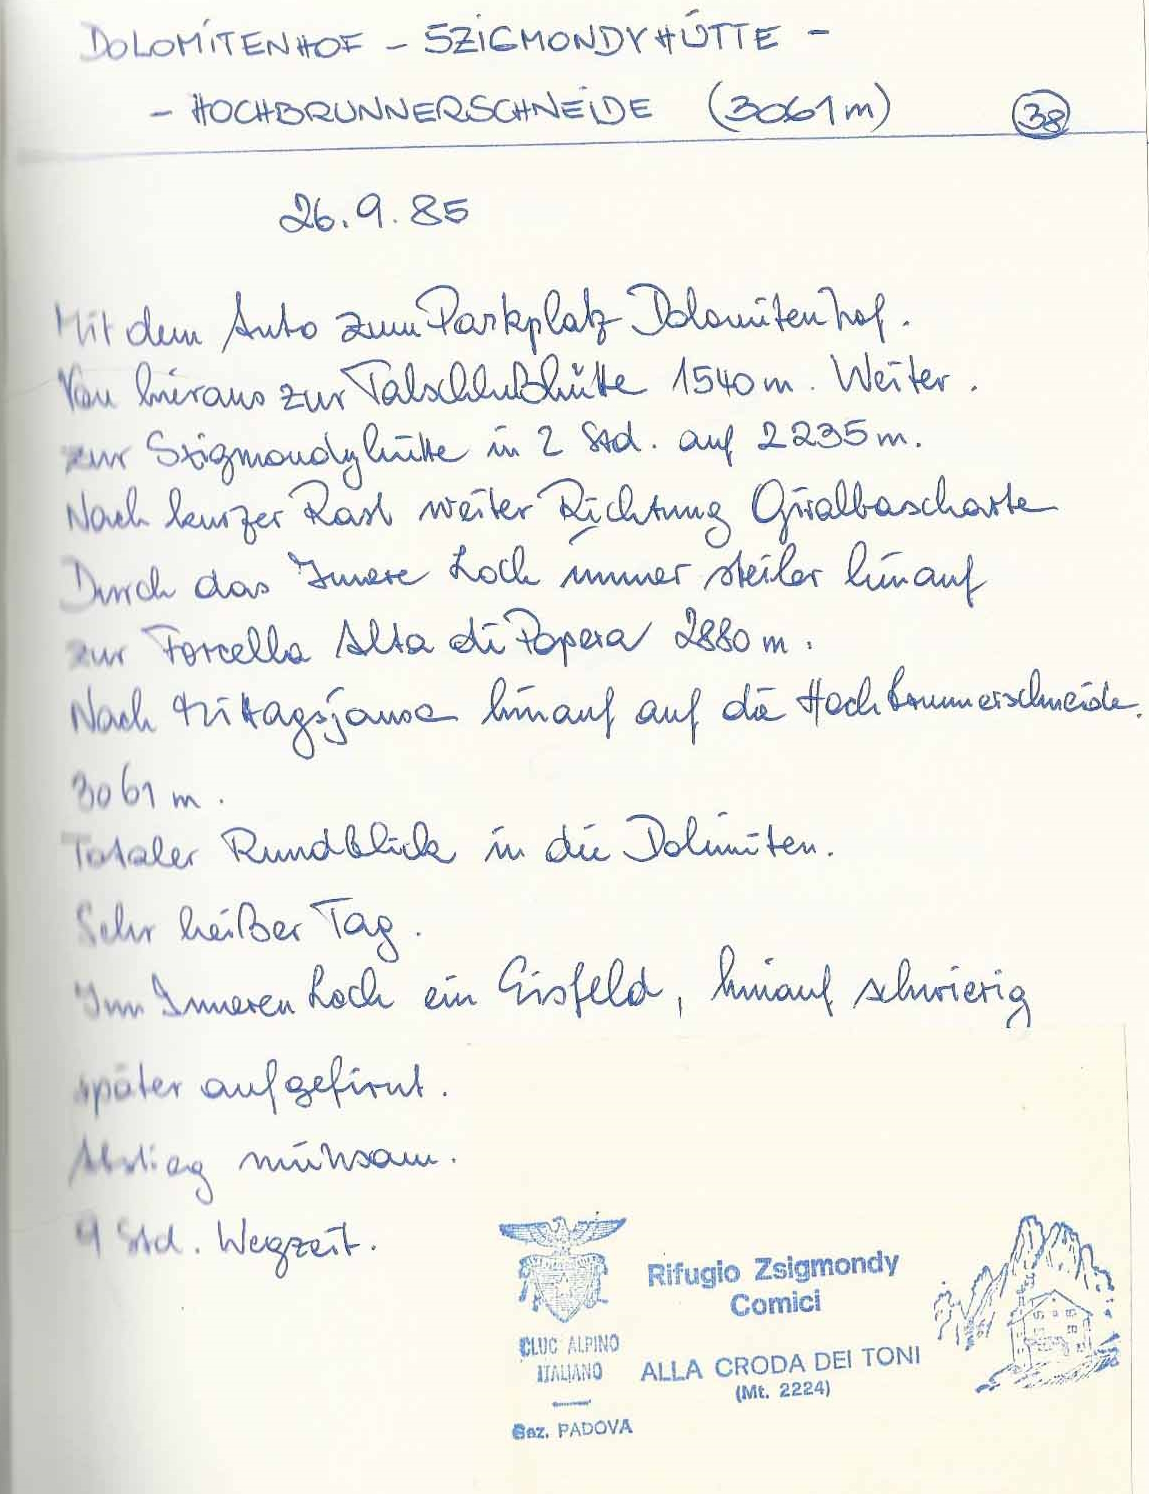 DOLOMITENHOF – SZIGMONDYHÜTTE –
– HOCHBRUNNERSCHNEIDE (3061m) 38
26.9.85
Mit dem Auto zum Parkplatz Dolomitenhof.
Von hieraus zur Talschlußhütte 1540m. Weiter.
zur Szigmondyhütte in 2 Std. auf 2235m.
Nach kurzer Rast weiter Richtung Giralbascharte
Durch das Innere Loch immer steiler hinauf
zur Forcella Alta di Popera 2880m.
Nach Mittagsjause hinauf auf die Hochbrunnerschneide.
3061m.
Totaler Rundblick in die Dolimiten.
Sehr heißer Tag.
Im Inneren Loch ein Eisfeld, hinauf schwierig
später aufgefirnt.
Abstieg mühsam.
9 Std. Wegzeit.
Rifugio Zsigmondy
Comici
CLUC ALPINO
ITALIANO
ALLA CRODA DEI TONI
(Mt. 2224)
Sez. PADOVA